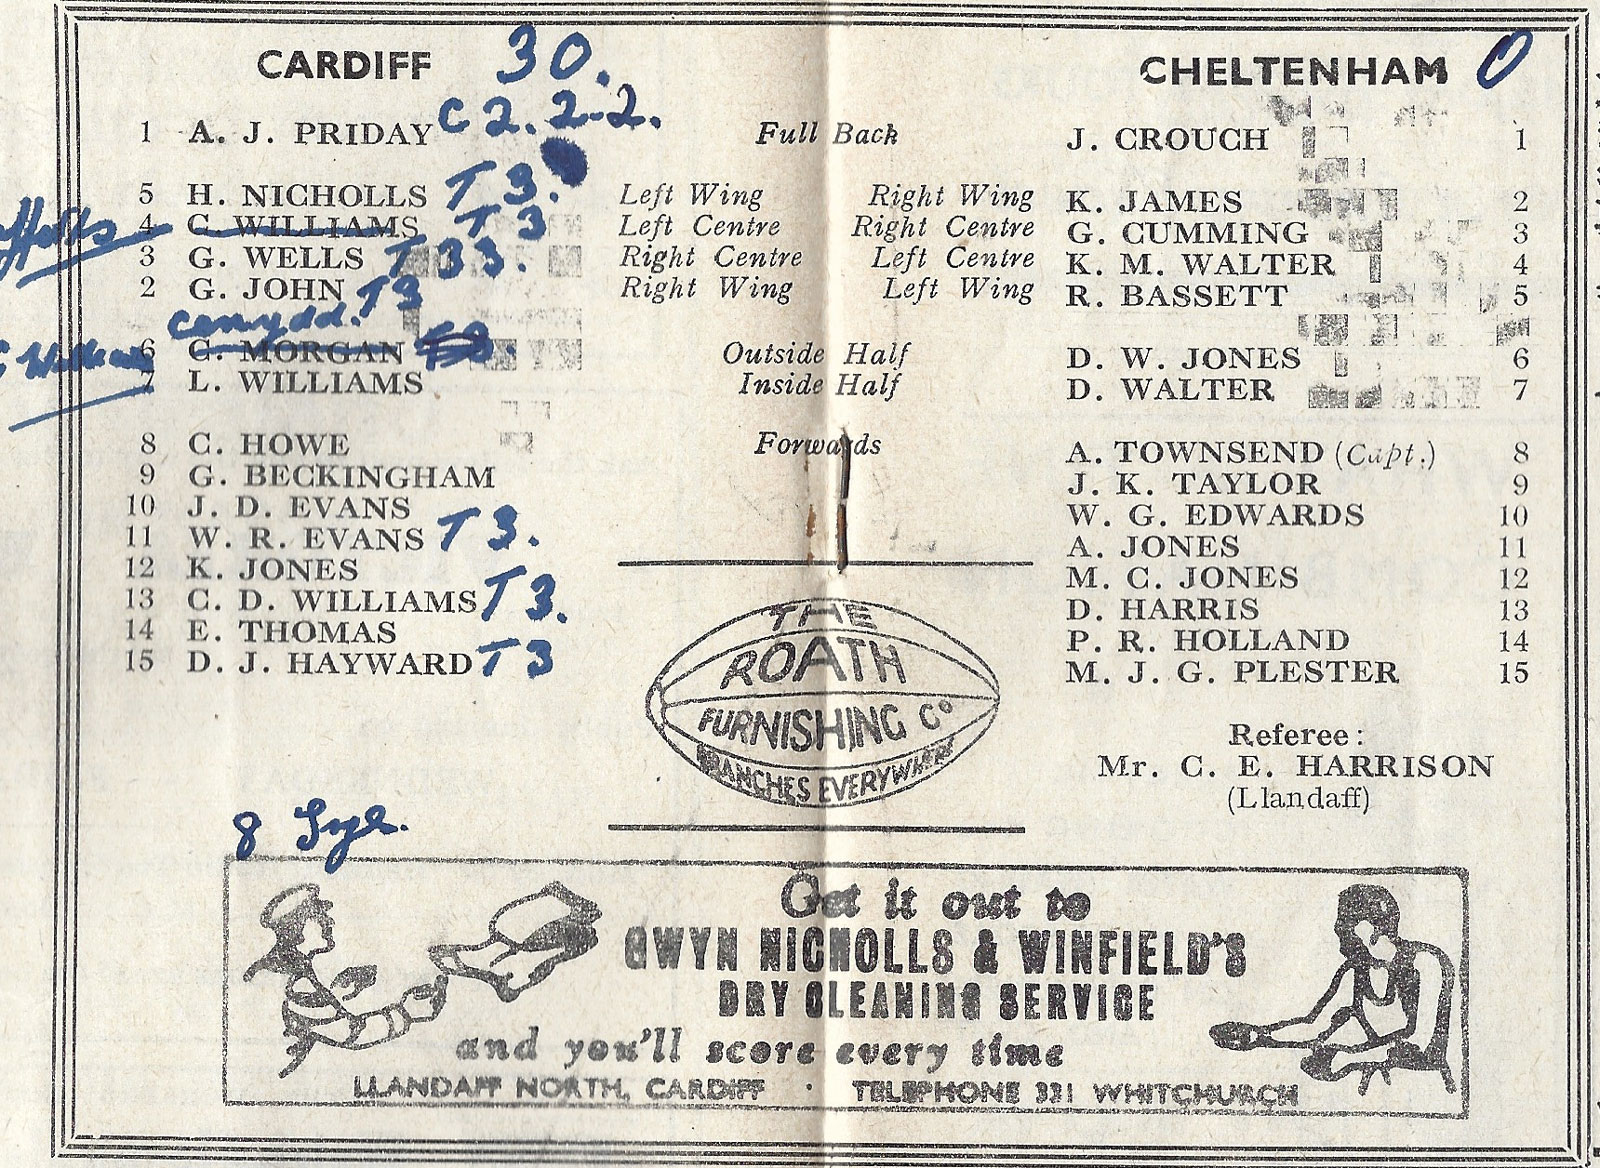 CARDIFF 30. CHELTENHAM 0
1 A. J. PRIDAY C 2. 2-2. Full Back J. CROUCH 1
5 H. NICHOLLS T 3. Left Wing Right Wing K. JAMES 2
4 C. WILLIAMS T 3 Left Centre Right Centre G. CUMMING 3
3 G. WELLS T 33. Right Centre Left Centre K. M. WALTER 4
2 G. JOHN T3 Right Wing Left Wing R. BASSETT 5
6 C. MORGAN Outside Half D. W. JONES 6
7 L. WILLIAMS Inside Half D. WALTER 7
8 C. HOWE Forwards A. TOWNSEND (Capt.) 8
9 G. BECKINGHAM J. K. TAYLOR 9
10 J. D. EVANS W. G. EDWARDS 10
11 W. R. EVANS T 3. A. JONES 11
12 K. JONES M. C. JONES 12
13 C. D. WILLIAMS T 3. D. HARRIS 13
14 E. THOMAS P. R. HOLLAND 14
15 D. J. HAYWARD T 3 M. J. G. PLESTER 15
THE
ROATH
FURNISHING Co
BRANCHES EVERYWHERE
Referee:
Mr. C. E. HARRISON
(Llandaff)
8
Get it out to
GWYN NICHOLLS & WINFIELD'S
DRY CLEANING SERVICE
and you'll score every time
LLANDAFF NORTH, CARDIFF · TELEPHONE 331 WHITCHURCH